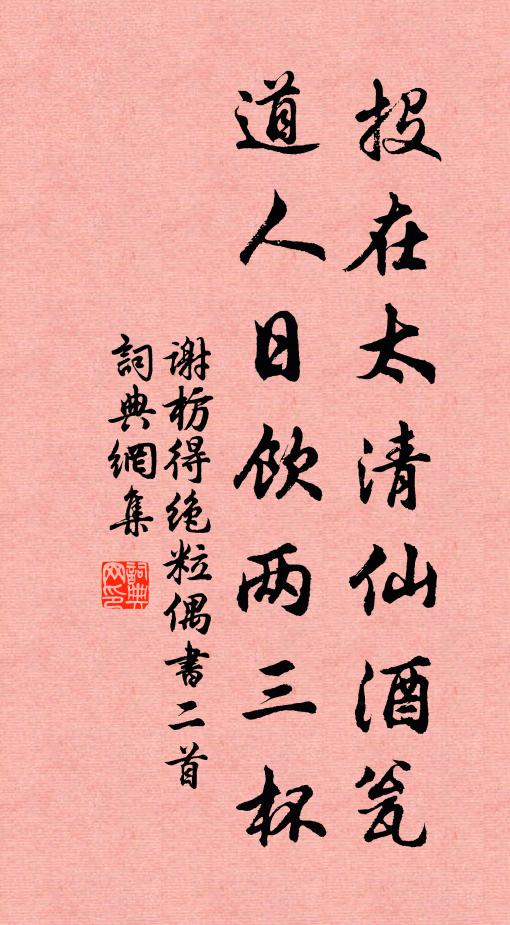 投在太清仙酒瓮
道人日饮两三杯
谢枋得绝粒偶书二首
詞典網集
詞典网印